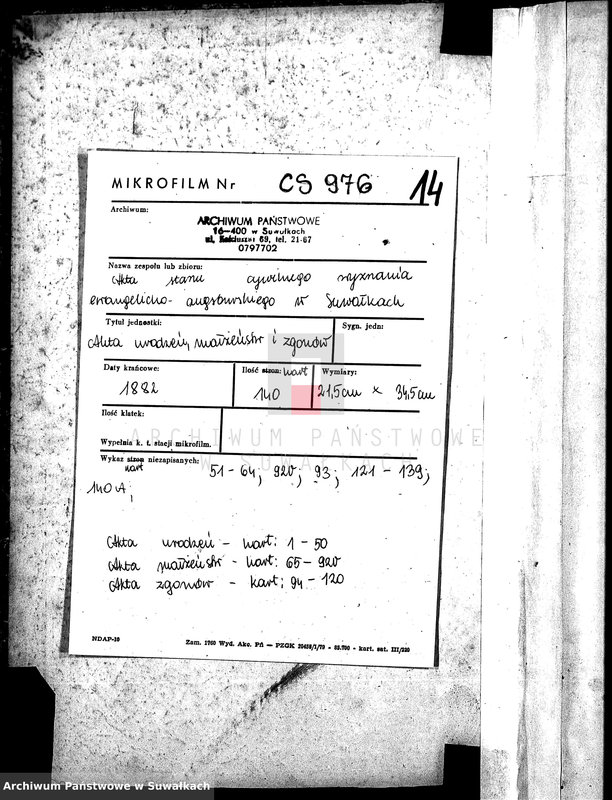 MIKROFILM Nr CS 976 14
Archiwum:
ARCHIWUM PAŃSTWOWE
16-400 w Suwałkach
ul. Kościuszki 69, tel. 21-67
0797702
Nazwa zespołu lub zbioru:
Akta stanu cywilnego wyznania
ewangelicko-augsburskiego w Suwałkach
Tytuł jednostki: Sygn. jedn:
Akta urodzeń, małżeństw i zgonów
Daty krańcowe: Ilość stron: kart Wymiary:
1882 140 21,5cm x 34,5cm
Ilość klatek:
Wypełnia k. t. stacji mikrofilm.
ARCHIWUM PAŃSTWOWE
W SUWAŁKACH
Wykaz stron niezapisanych:
kart 51-64; 92v; 93; 121-139;
140A;
Akta urodzeń - kart: 1-50
Akta małżeństw - kart: 65-92v
Akta zgonów - kart: 94-120
NDAP-10 Zam. 1760 Wyd. Akc. Pń — PZGK 20458/I/79 - 85.700 - kart. sat. III/220
Archiwum Państwowe w Suwałkach